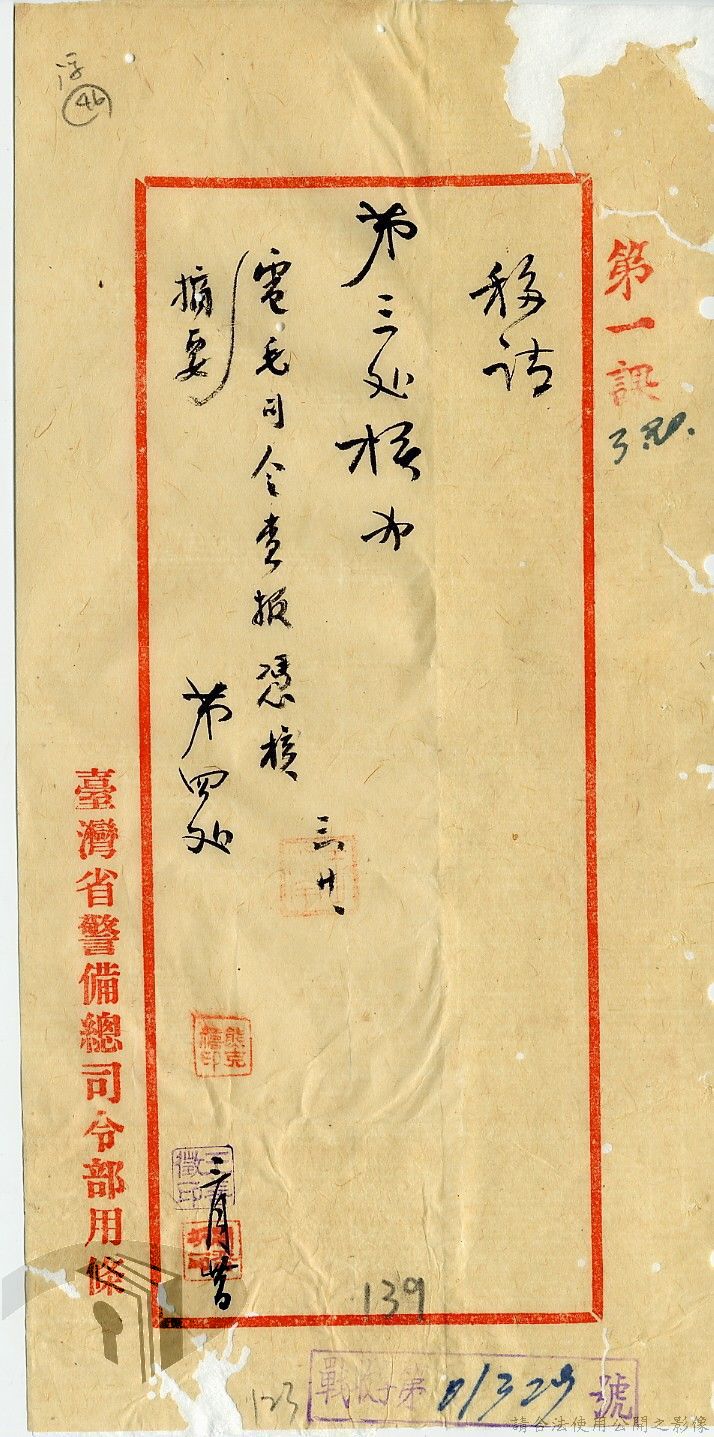 第一課
3/20.
移請
第三处核办
電毛司令查報憑核
三、廿、
摘要
第四处
熊克禧印
三月廿
臺灣省警備總司令部用條
浮
46
139
123
戰 第01329號
請合法使用公開之影像